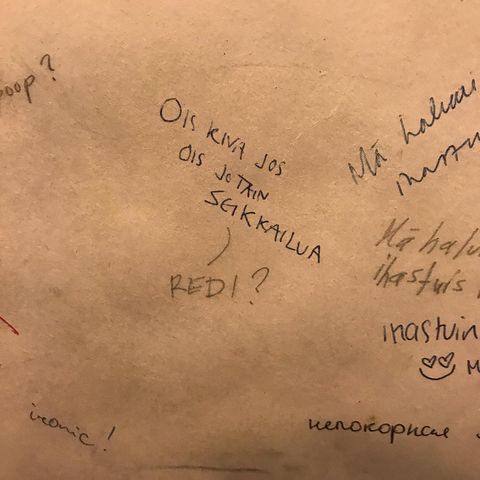 poop?
OIS KIVA JOS
OIS JOTAIN
SEIKKAILUA
REDI?
Mä halusi
ihastu
Mä halu
ihastuis
ihastuin
M
ironic!
непокорная